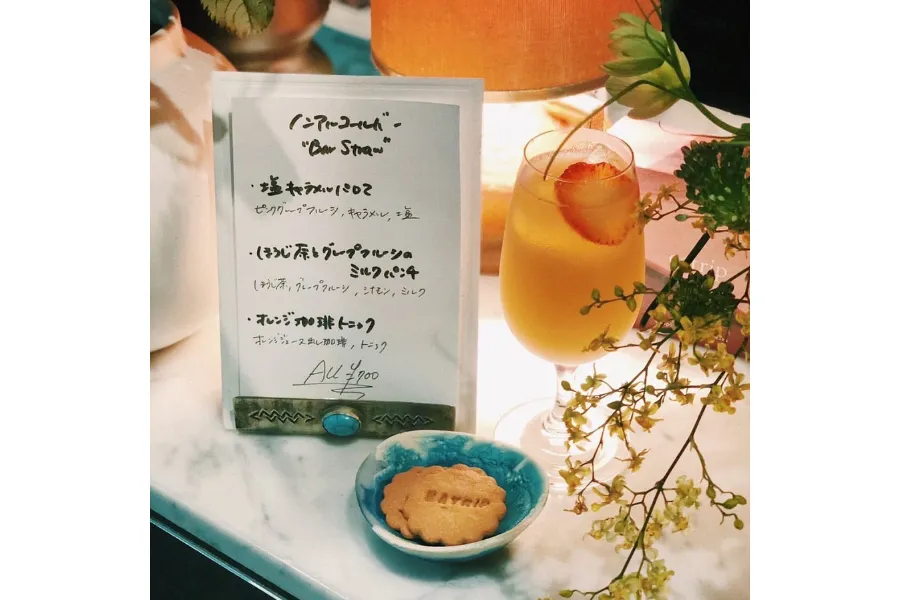 ノンアルコールバー
"Bar Straw"
・塩キャラメルパロマ
ピンクグレープフルーツ, キャラメル, 塩
・ほうじ茶とグレープフルーツの
ミルクパンチ
ほうじ茶, グレープフルーツ, シナモン, ミルク
・オレンジ珈琲トニック
オレンジジュース 出し珈琲, トニック
ALL ¥700
EATRIP
trip